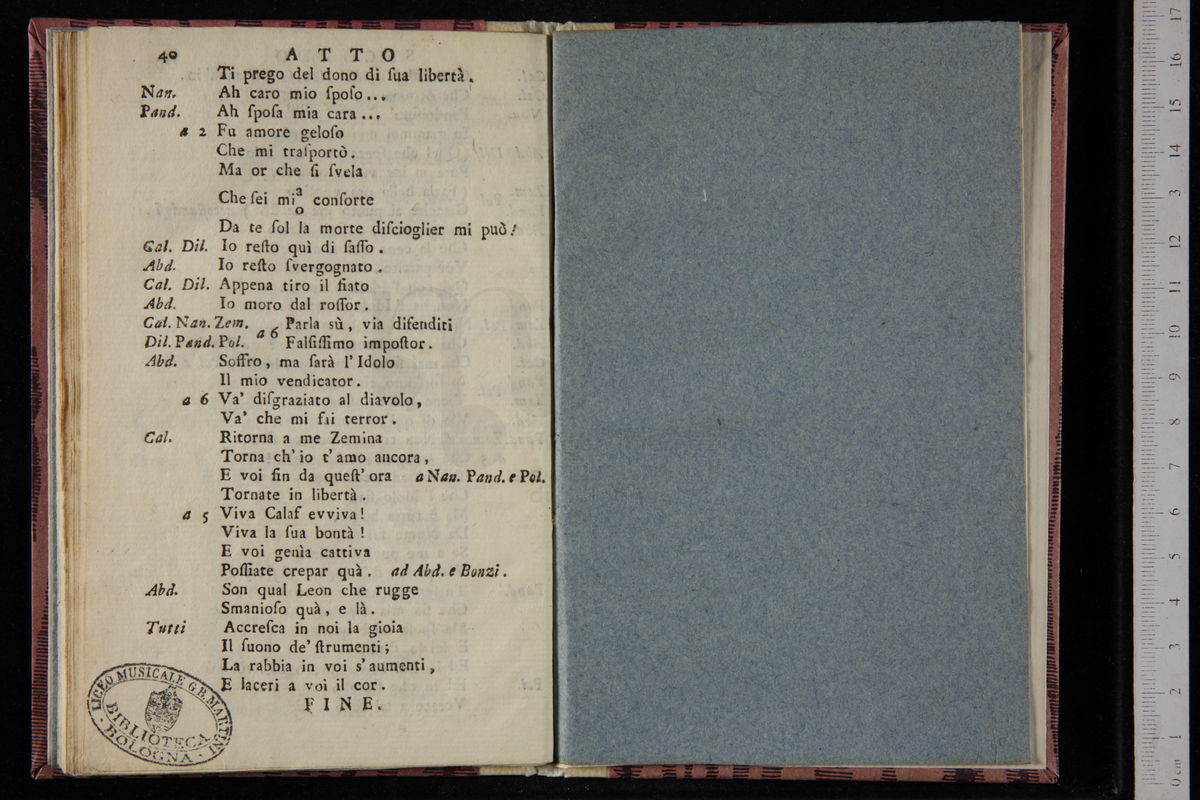 40 ATTO
Ti prego del dono di ſua libertà.
Nan. Ah caro mio ſpoſo...
Pand. Ah ſpoſa mia cara...
a 2 Fu amore geloſo
Che mi traſportò.
Ma or che ſi ſvela
Che ſei mi a/o conſorte
Da te ſol la morte diſcioglier mi può!
Cal. Dil. Io reſto quì di ſaſſo.
Abd. Io reſto ſvergognato.
Cal. Dil. Appena tiro il fiato
Abd. Io moro dal roſſor.
Cal. Nan. Zem. a 6 Parla sù, via difenditi
Dil. Pand. Pol. Falſiſſimo impoſtor.
Abd. Soffro, ma ſarà l'Idolo
Il mio vendicator.
a 6 Va' diſgraziato al diavolo,
Va' che mi fai terror.
Cal. Ritorna a me Zemina
Torna ch'io t'amo ancora,
E voi fin da queſt'ora a Nan. Pand. e Pol.
Tornate in libertà.
a 5 Viva Calaf evviva!
Viva la ſua bontà!
E voi genìa cattiva
Poſſiate crepar quà. ad Abd. e Bonzi.
Abd. Son qual Leon che rugge
Smanioſo quà, e là.
Tutti Accreſca in noi la gioia
Il ſuono de' ſtrumenti;
La rabbia in voi s'aumenti,
E laceri a voi il cor.
FINE.
LICEO MUSICALE G.B. MARTINI
BIBLIOTECA
BOLOGNA
0 cm 1 2 3 4 5 6 7 8 9 10 11 12 13 14 15 16 17